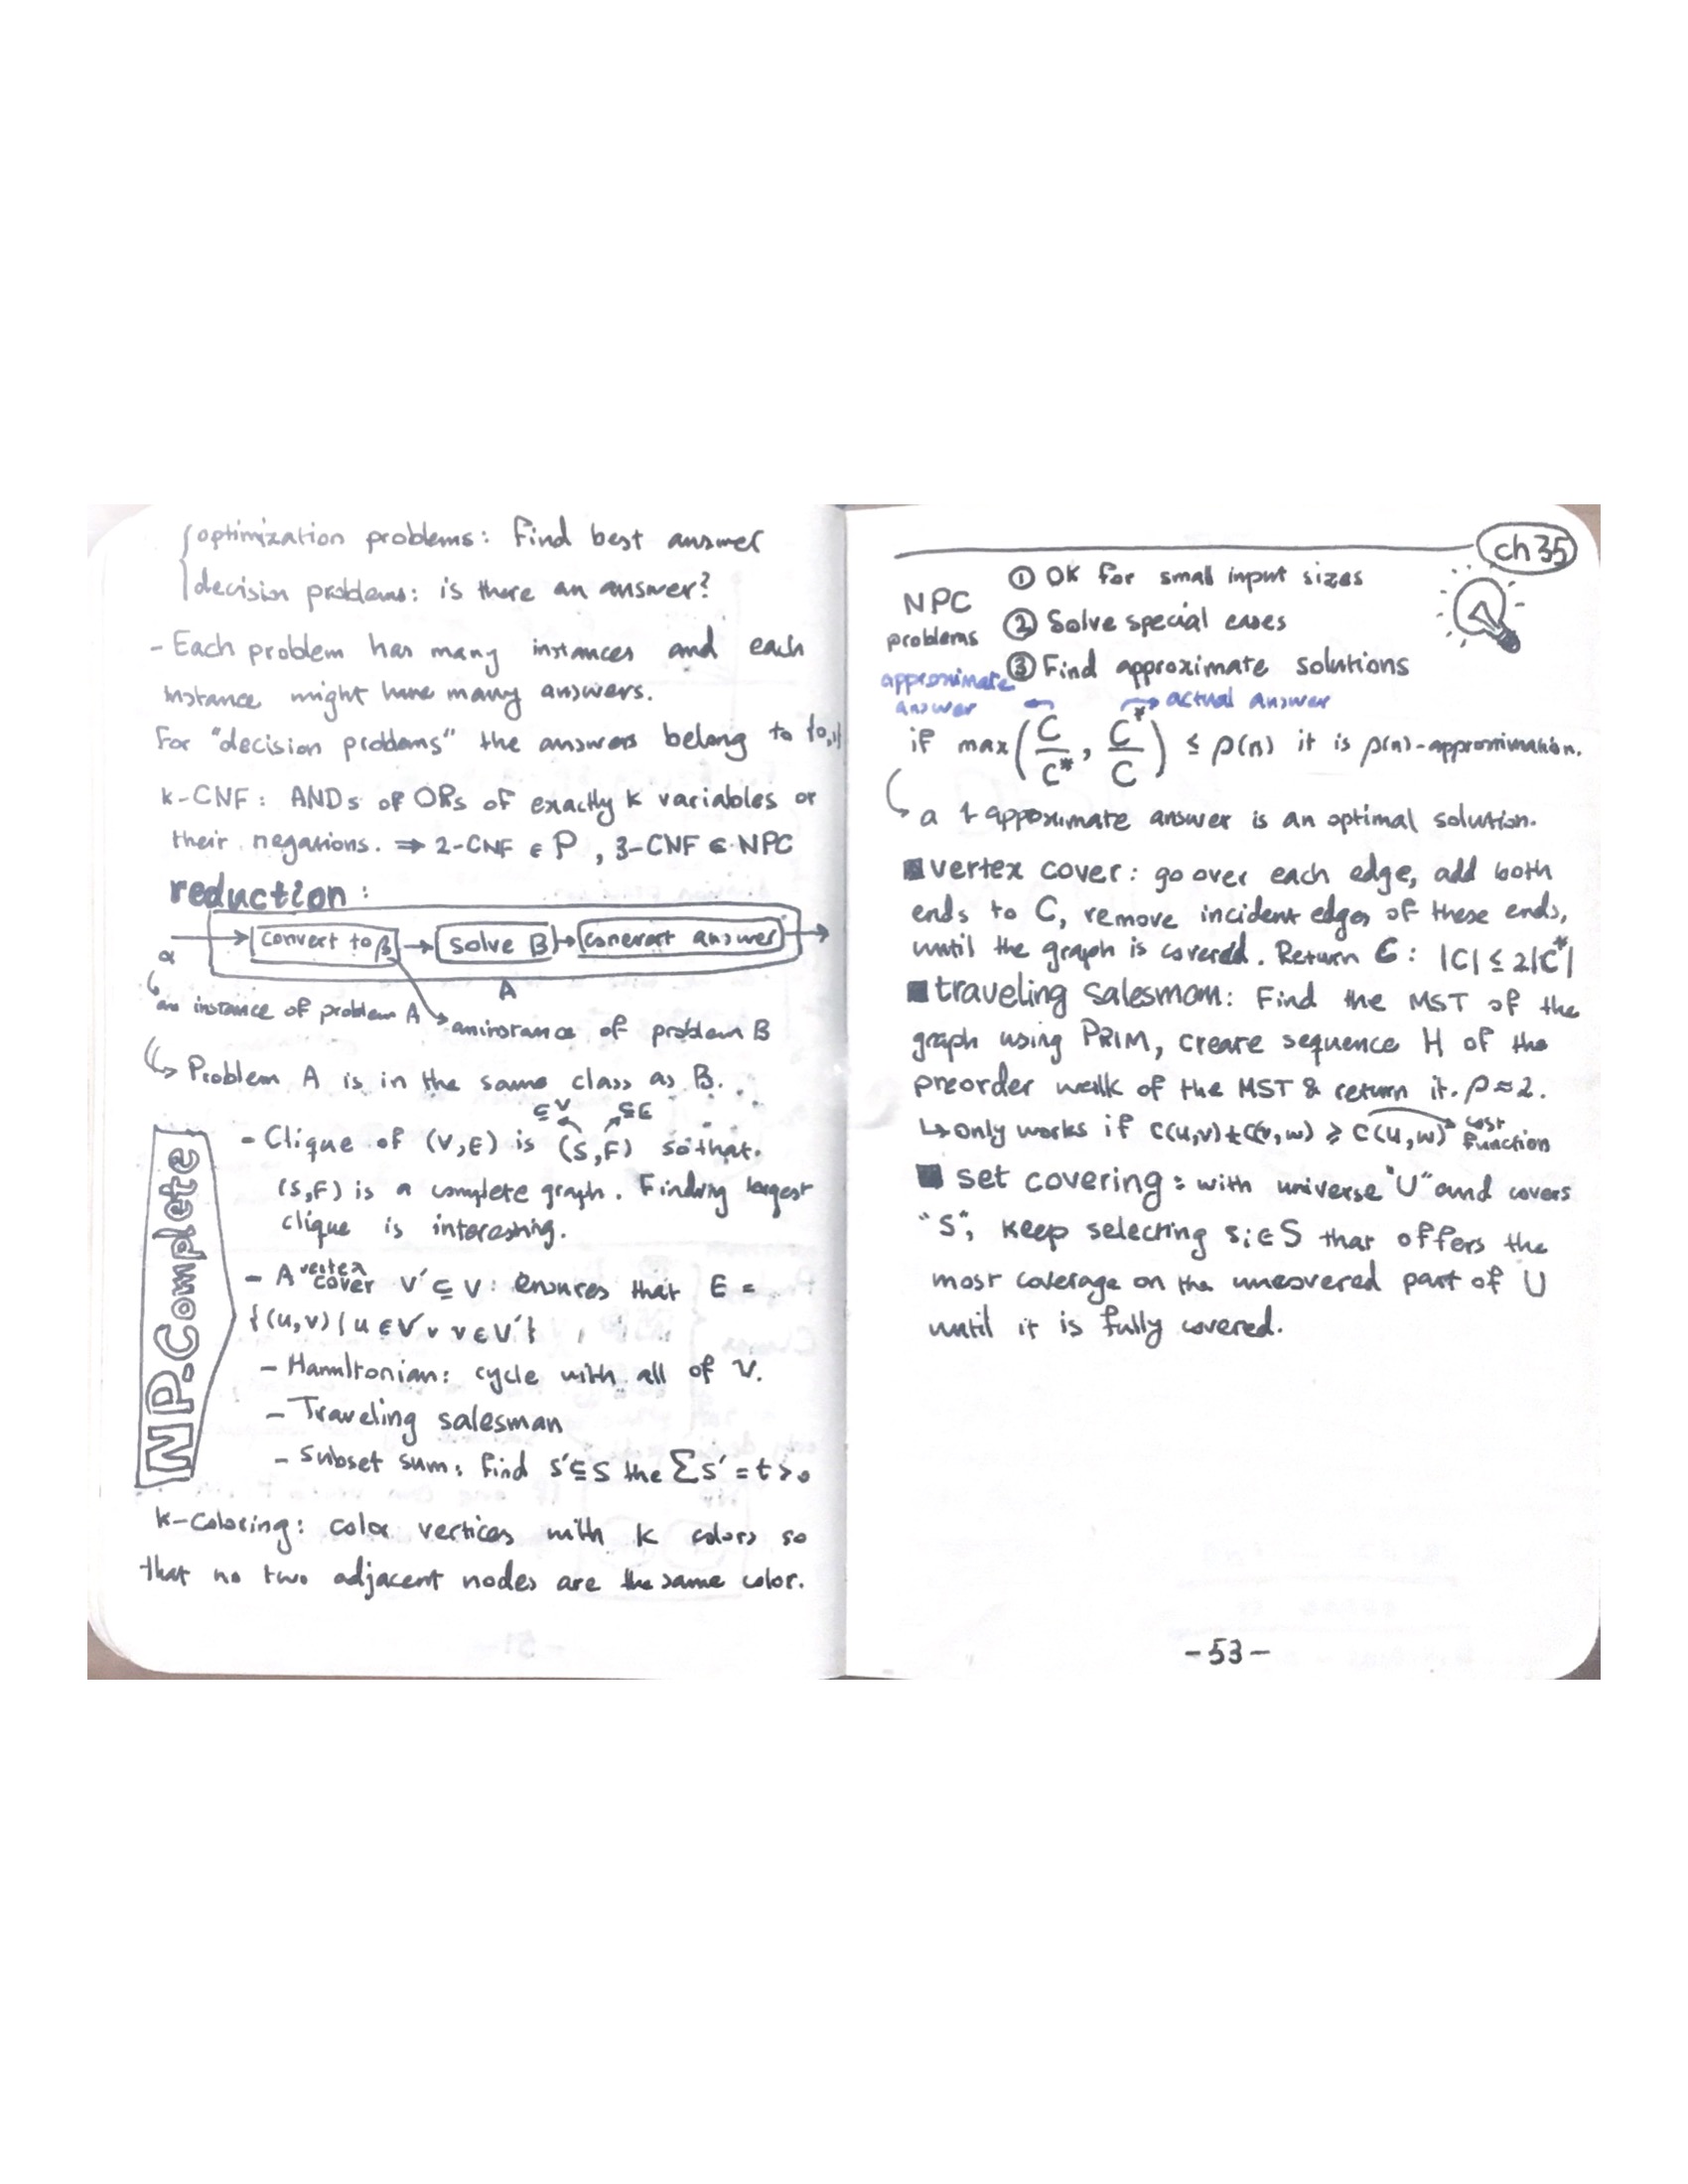 optimization problems: Find best answer
decision problems: is there an answer?
- Each problem has many instances and each
instance might have many answers.
For "decision problems" the answers belong to {0,1}
k-CNF: ANDs of ORs of exactly k variables or
their negations. ⇒ 2-CNF ∈ P, 3-CNF ∈ NPC
reduction:
α → convert to β → solve β → convert answer →
A
an instance of problem A
an instance of problem B
Problem A is in the same class as B.
⊆V ⊆E
NP-Complete
- Clique of (V,E) is (S,F) so that
(S,F) is a complete graph. Finding largest
clique is interesting.
- A vertex cover V' ⊆ V: ensures that E =
{(u,v) | u ∈ V' ∨ v ∈ V'}
- Hamiltonian: cycle with all of V.
- Traveling salesman
- Subset sum: find S'⊆S the ΣS' = t > 0
k-coloring: color vertices with k colors so
that no two adjacent nodes are the same color.
ch 35
NPC problems
① OK for small input sizes
② Solve special cases
③ Find approximate solutions
approximate answer
actual answer
if max(C/C*, C*/C) ≤ ρ(n) it is ρ(n)-approximation.
a 1 approximate answer is an optimal solution.
■ vertex cover: go over each edge, add both
ends to C, remove incident edges of these ends,
until the graph is covered. Return C: |C| ≤ 2|C*|
■ traveling salesmam: Find the MST of the
graph using PRIM, create sequence H of the
preorder walk of the MST & return it. ρ≈2.
↳ only works if c(u,v)+c(v,w) ≥ c(u,w) cost function
■ set covering: with universe "U" and covers
"S", keep selecting Si ∈ S that offers the
most coverage on the uncovered part of U
until it is fully covered.
-53-